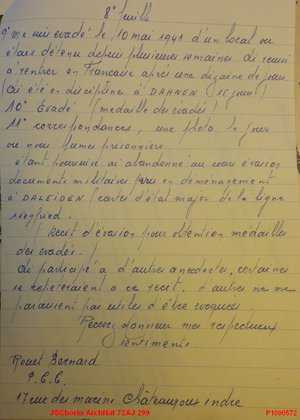 8° feuille
9° me suis évadé le 10 mai 1941 d'un local ou
étais détenu depuis plusieurs semaines. Ai reussi
à rentrer en Francave après une dizaine de jours.
Ai été en discipline à DAHNEN (15 jours)
10° Evadé (médaille des évadés)
11° correspondances, une photo le jour
ou nous fumes prisonniers.
étant poursuivi ai abandonné au cours evasion
documents militaires en déménagement
à DALEIDEN (caves d'état major de la ligne
siegfried.
(Récit d'évasion pour obtention médailles
des evadés.)
Ai participé a d'autres anecdotes, certaines
se repèteraient a ce recit, d'autres ne me
paraissent pas utiles d'être evoquées.
Recevez Monsieur mes respectueux
sentiments
Rouet Bernard
17 rue des marins Châteauroux indre
JSChorin ArchNat 72AJ 299
P1090572